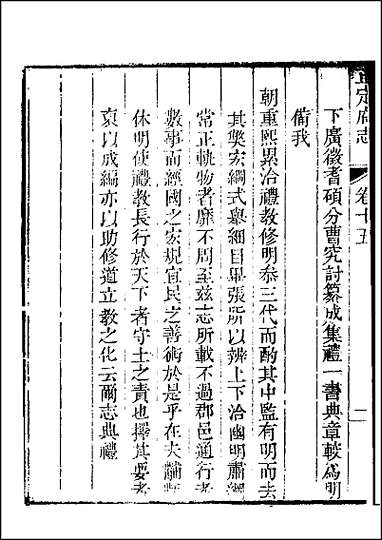 下廣徵耆碩分曹究討纂成集禮一書典章較爲明
備我
朝重熙累洽禮教修明叅三代而酌其中監有明而去
其獘宏綱式舉細目畢張所以辨上下洽國明肅綱
常正軌物者靡不周至兹志所載不過郡邑通行者
數事而經國之宏規宜民之善術於是乎在大黼
休明使禮教長行於天下者守土之責也擇其要者
裒以成編亦以助修道立教之化云爾志典禮
定府志
卷十五
一